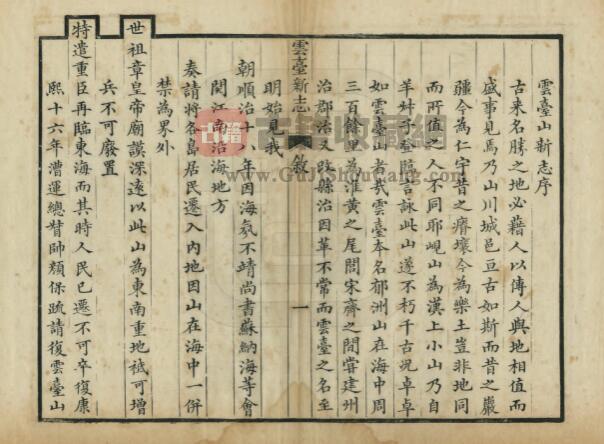 雲臺山新志序
古来名勝之地必藉人以傳人與地相值而
盛事見焉乃山川城邑亘古如斯而昔之巖
疆今為仁宇昔之瘠壤今為樂土豈非地同
而所值之人不同耶峴山為漢上小山乃自
羊叔子登臨言詠此山遂不朽千古况卓卓
如雲臺山者哉雲臺本名郁洲山在海中周
三百餘里為淮黄之尾閭宋齊之間甞建州
治郡治又改縣治因革不常而雲臺之名至
雲臺新志
敘
一
明始見我
朝順治十八年因海氛不靖尚書蘇納海等會
閱江南沿海地方
奏請將各島居民遷入内地因山在海中一併
禁為界外
世祖章皇帝廟謨深遠以此山為東南重地秪可增
兵不可廢置
特遣重臣再臨東海而其時人民已遷不可卒復康
熙十六年漕運總督帥顏保疏請復雲臺山
www.GuJiShouCang.com